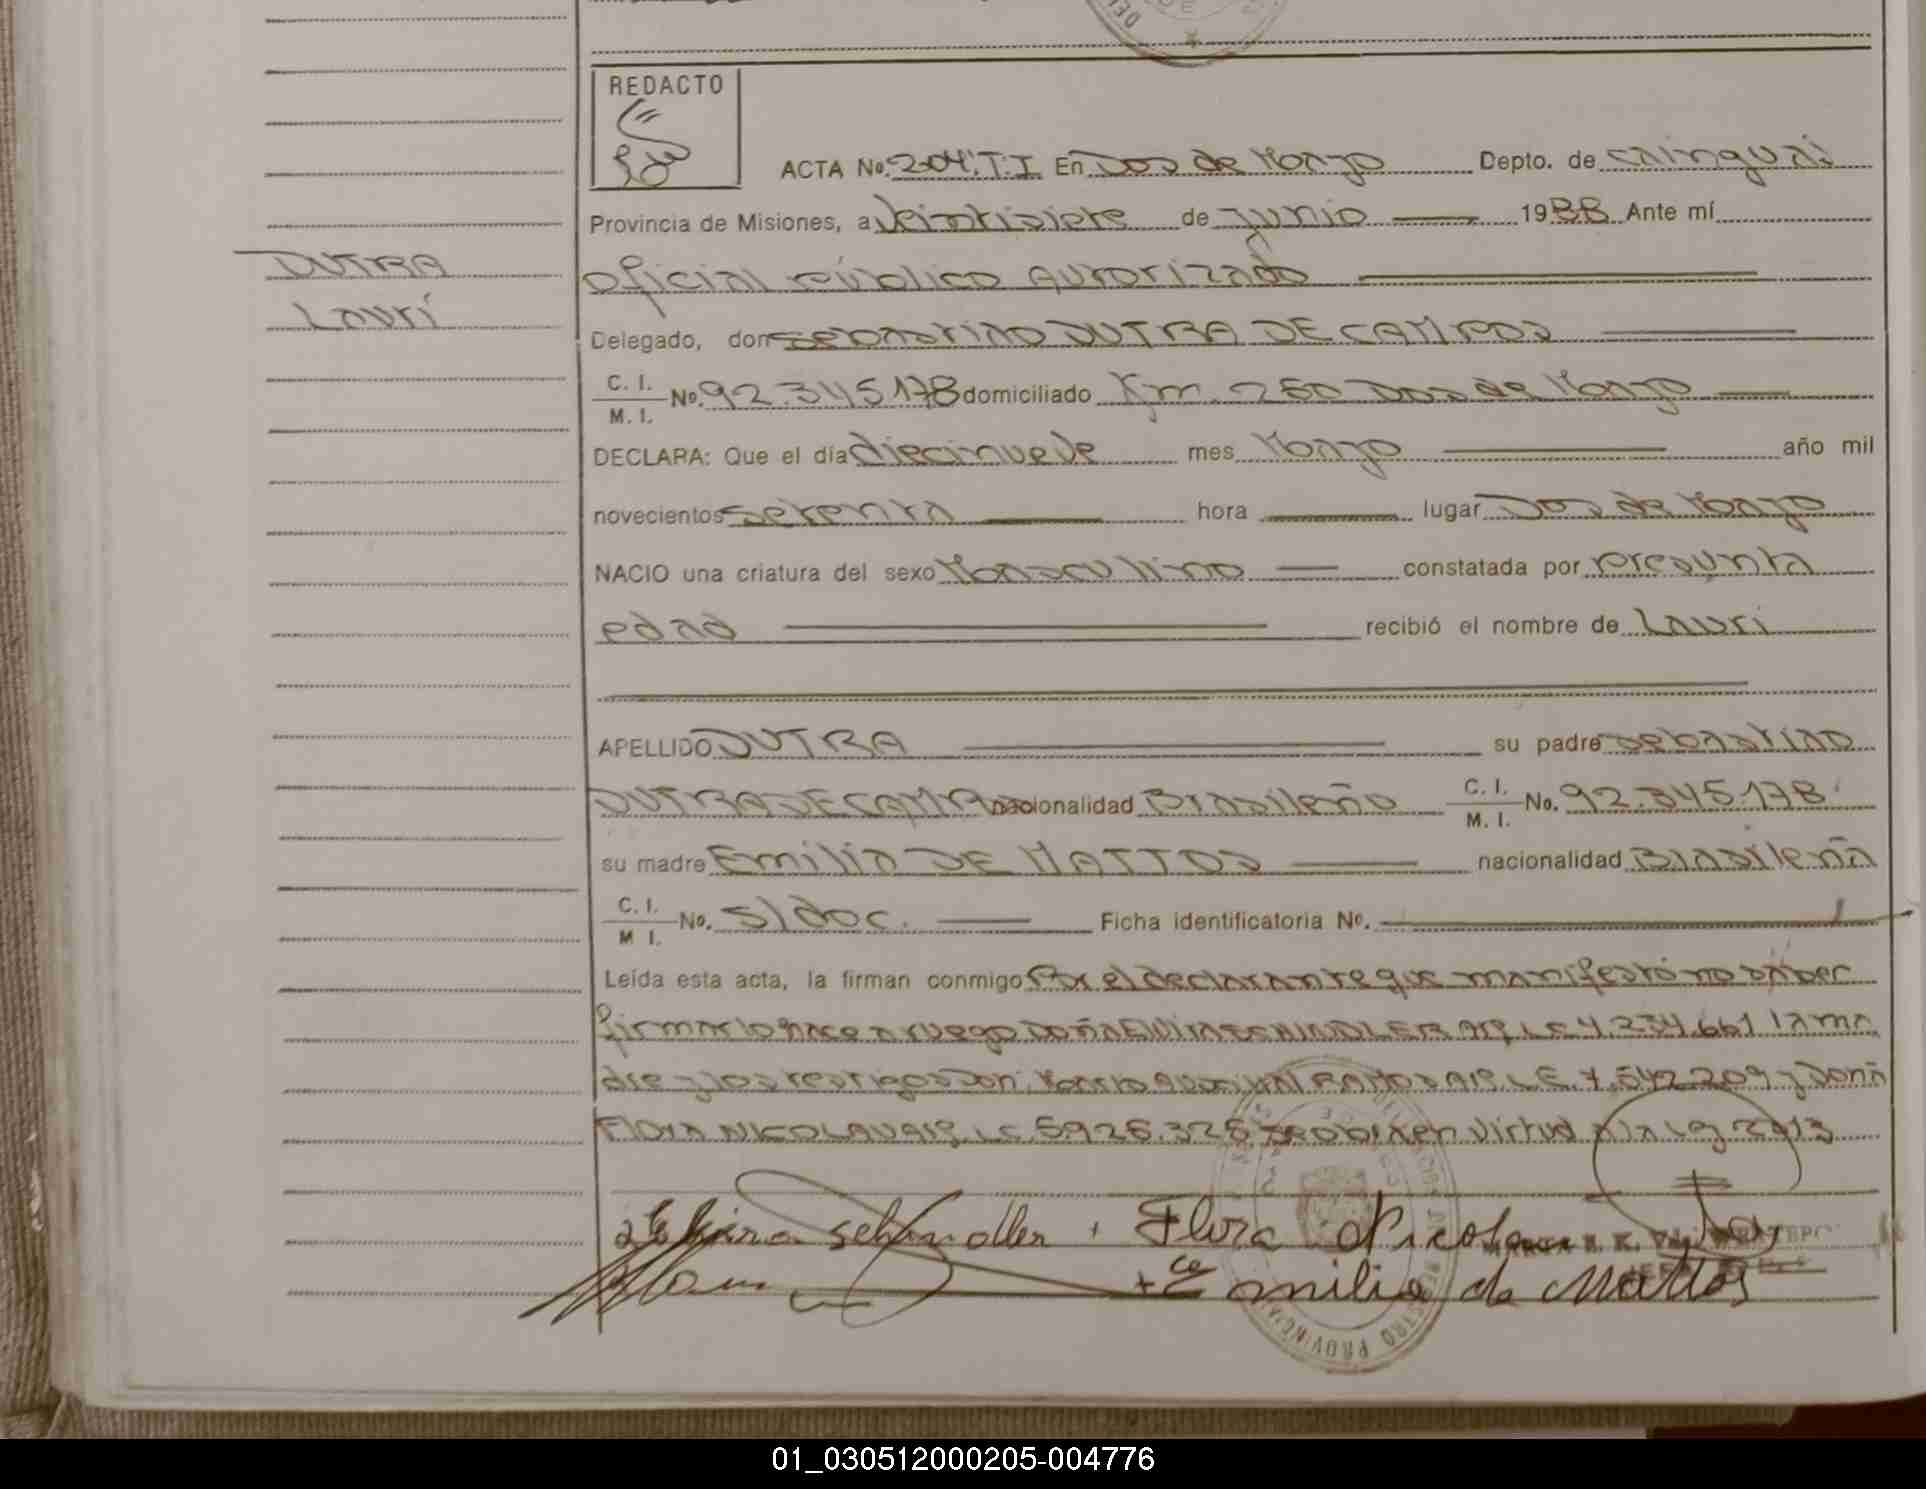 DEL
DE
REDACTO
ACTA No. 204. T. I En Dos de Mayo Depto. de Cainguás
Provincia de Misiones, a Veintisiete de Junio 1988 Ante mí
DUTRA
Oficial Público Autorizado
Laurí
Delegado, don Sebastiao DUTRA DE CAMPOS
C. I.
M. I. No. 92.345.178 domiciliado Km. 250 Dos de Mayo
DECLARA: Que el día diecinueve mes Mayo año mil
novecientos setenta hora lugar Dos de Mayo
NACIO una criatura del sexo Masculino constatada por presunta
edad recibió el nombre de Laurí
APELLIDO DUTRA su padre Sebastiao
DUTRA DE CAMPOS nacionalidad Brasileño C. I.
M. I. No. 92.345.178
su madre Emilia DE MATTOS nacionalidad Brasileña
C. I.
M I. No. s/doc. Ficha identificatoria No.
Leída esta acta, la firman conmigo Por el declarante que manifestó no saber
firmar lo hace a ruego Doña SCHINDLER arg. L.E 4.234.661 la ma
dre y los testigos Don RAMOS arg. L.E. 7.542.209 y Doña
Flora NICOLAU arg. L.C. 5.926.326 en virtud a la Ley
Schindler + Flora Nicolau
+ Emilia de Mattos
REGISTRO PROVINCIAL
01_030512000205-004776